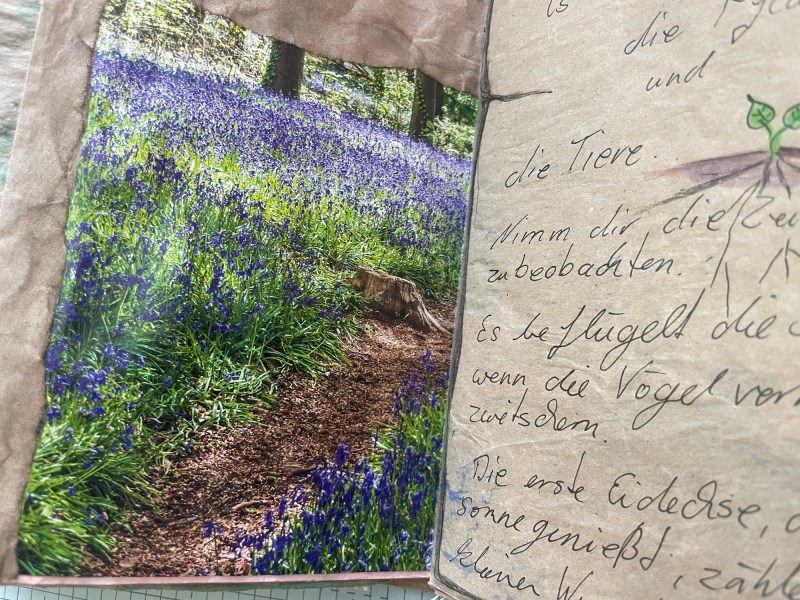 die
und
die Tiere.
Nimm dir die Zei
zu beobachten.
Es beflügelt die
wenn die Vögel ver
zwitschern.
Die erste Eidechse, d
Sonne genießt, zähle
kleiner W